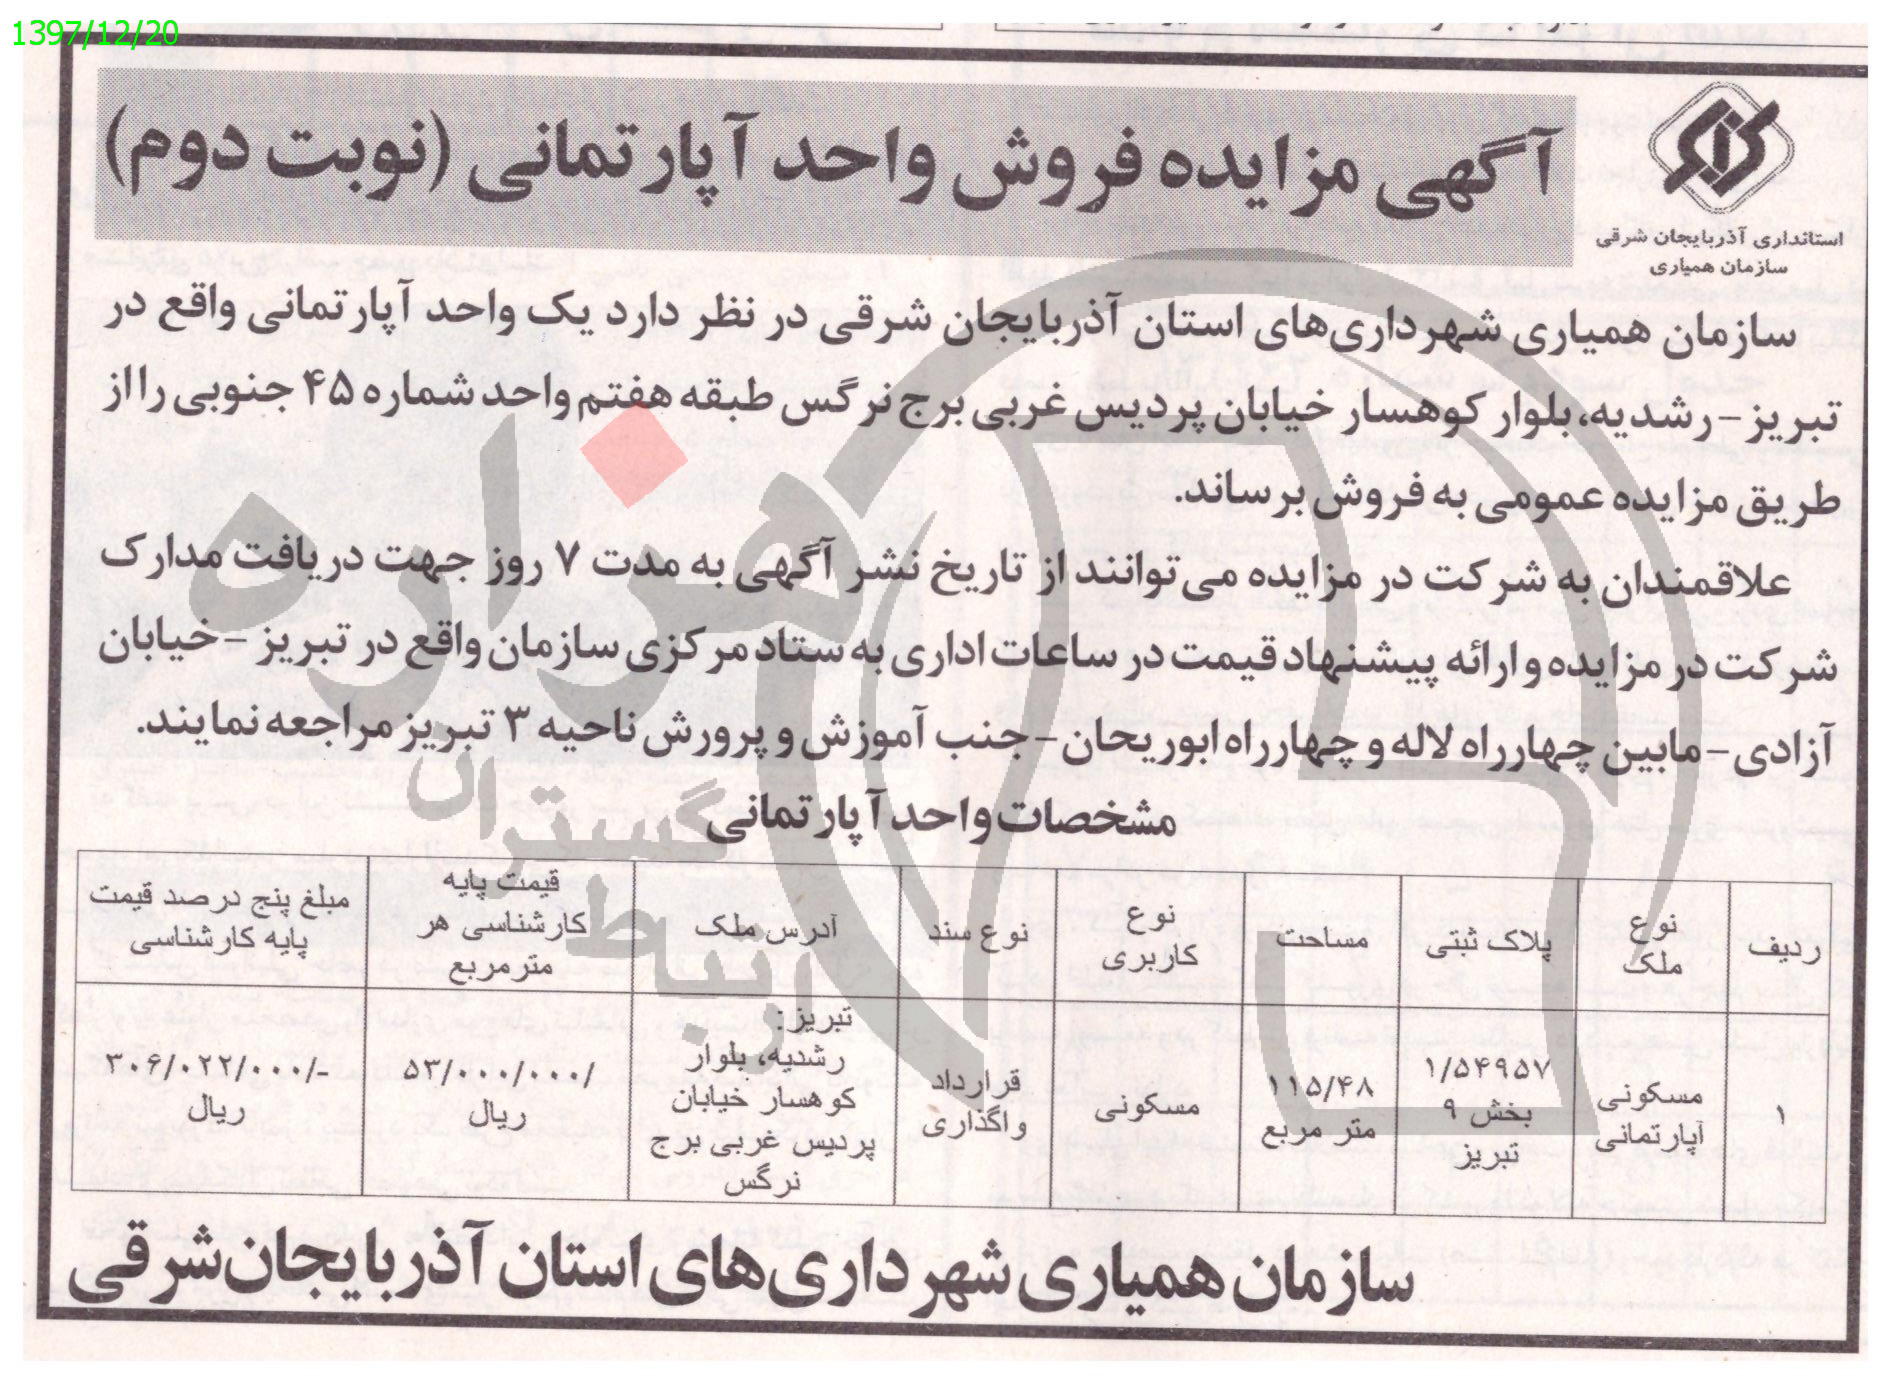 1397/12/20
استانداری آذربایجان شرقی
سازمان همیاری
آگهی مزایده فروش واحد آپارتمانی (نوبت دوم)
سازمان همیاری شهرداری‌های استان آذربایجان شرقی در نظر دارد یک واحد آپارتمانی واقع در
تبریز - رشدیه، بلوار کوهسار خیابان پردیس غربی برج نرگس طبقه هفتم واحد شماره ۴۵ جنوبی را از
طریق مزایده عمومی به فروش برساند.
علاقمندان به شرکت در مزایده می‌توانند از تاریخ نشر آگهی به مدت ۷ روز جهت دریافت مدارک
شرکت در مزایده و ارائه پیشنهاد قیمت در ساعات اداری به ستاد مرکزی سازمان واقع در تبریز - خیابان
آزادی - مابین چهارراه لاله و چهارراه ابوریحان - جنب آموزش و پرورش ناحیه ۳ تبریز مراجعه نمایند.
مشخصات واحد آپارتمانی
ردیف | نوع ملک | پلاک ثبتی | مساحت | نوع کاربری | نوع سند | آدرس ملک | قیمت پایه کارشناسی هر مترمربع | مبلغ پنج درصد قیمت پایه کارشناسی
۱ | مسکونی آپارتمانی | ۱/۵۴۹۵۷ بخش ۹ تبریز | ۱۱۵/۴۸ متر مربع | مسکونی | قرارداد واگذاری | تبریز: رشدیه، بلوار کوهسار خیابان پردیس غربی برج نرگس | ۵۳/۰۰۰/۰۰۰/ ریال | ۳۰۶/۰۲۲/۰۰۰/- ریال
سازمان همیاری شهرداری‌های استان آذربایجان‌شرقی
هزاره
گستران
ارتباط